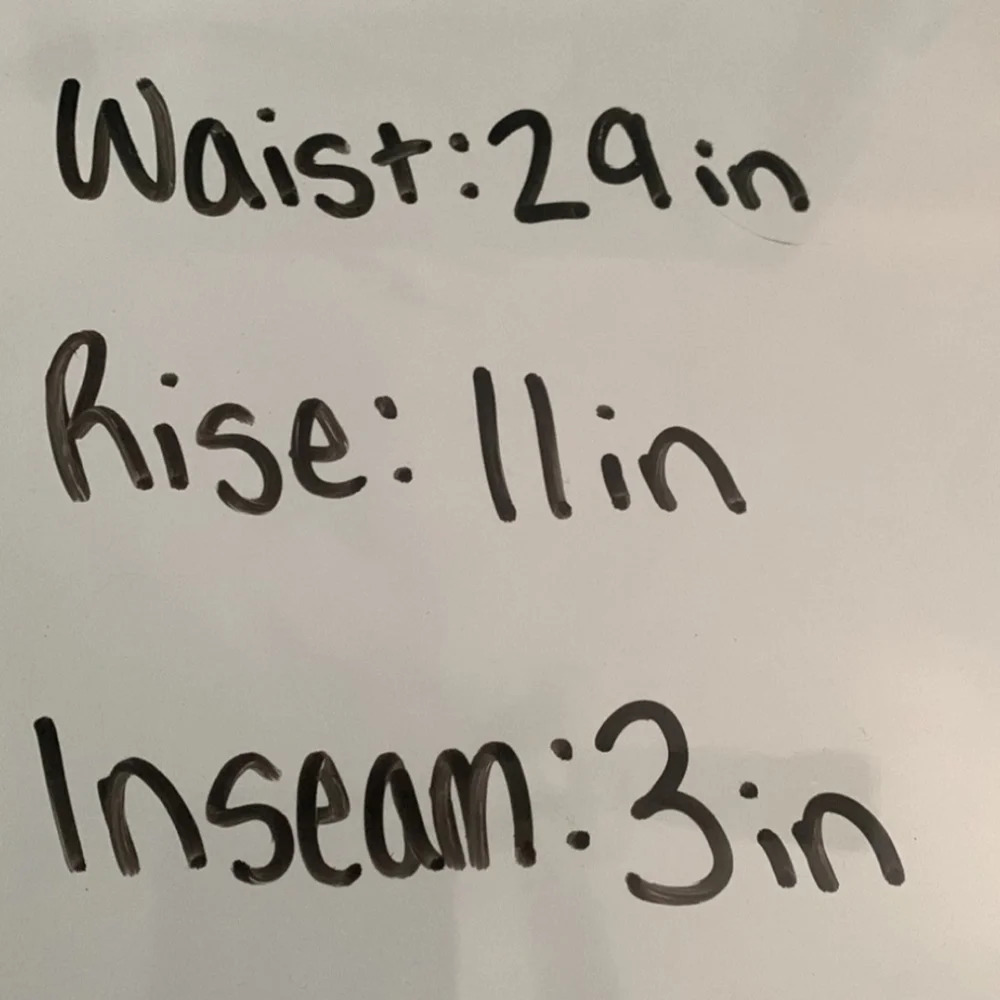 Waist: 29 in
Rise: 11 in
Inseam: 3 in